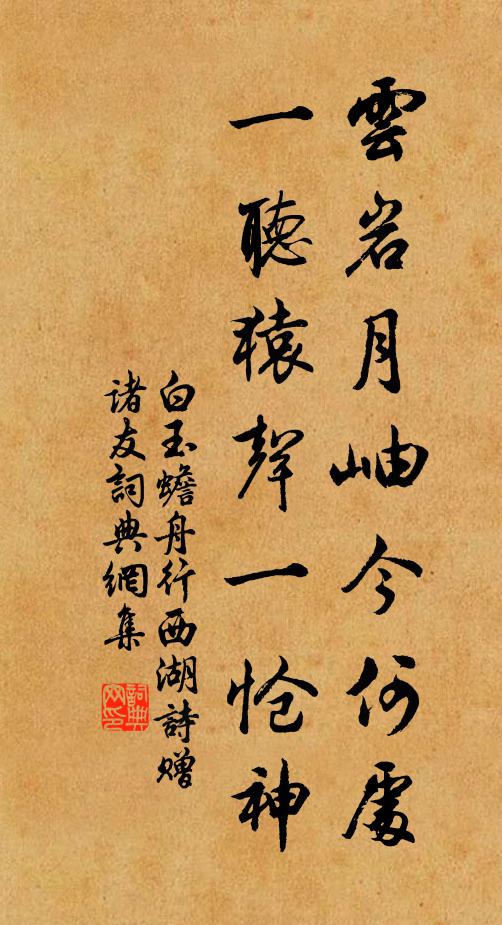 雲岩月岫今何處
一聽猿聲一愴神
白玉蟾舟行西湖詩贈
诸友詞典網集
詞典网印